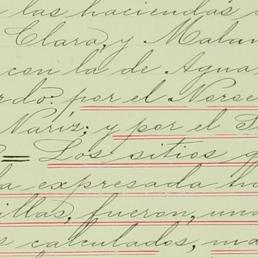 las haciendas
Clara, y Malam
con la de Agua
rdo: por el Noroe
Nariz; y por el S
= Los sitios q
a expresada ha
illas, fueron, una
s calculados, ma